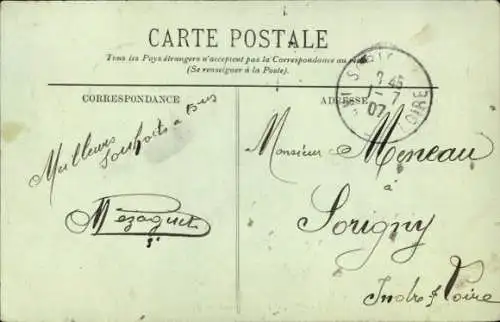 CARTE POSTALE
Tous les Pays étrangers n'acceptent pas la Correspondance au
(Se renseigner à la Poste).
CORRESPONDANCE
ADRESSE
Meilleurs
Souhaits a tous
Monsieur Meneau
à
Sorigny
Indre & Loire
7 45
1 - 7
07
LOIRE